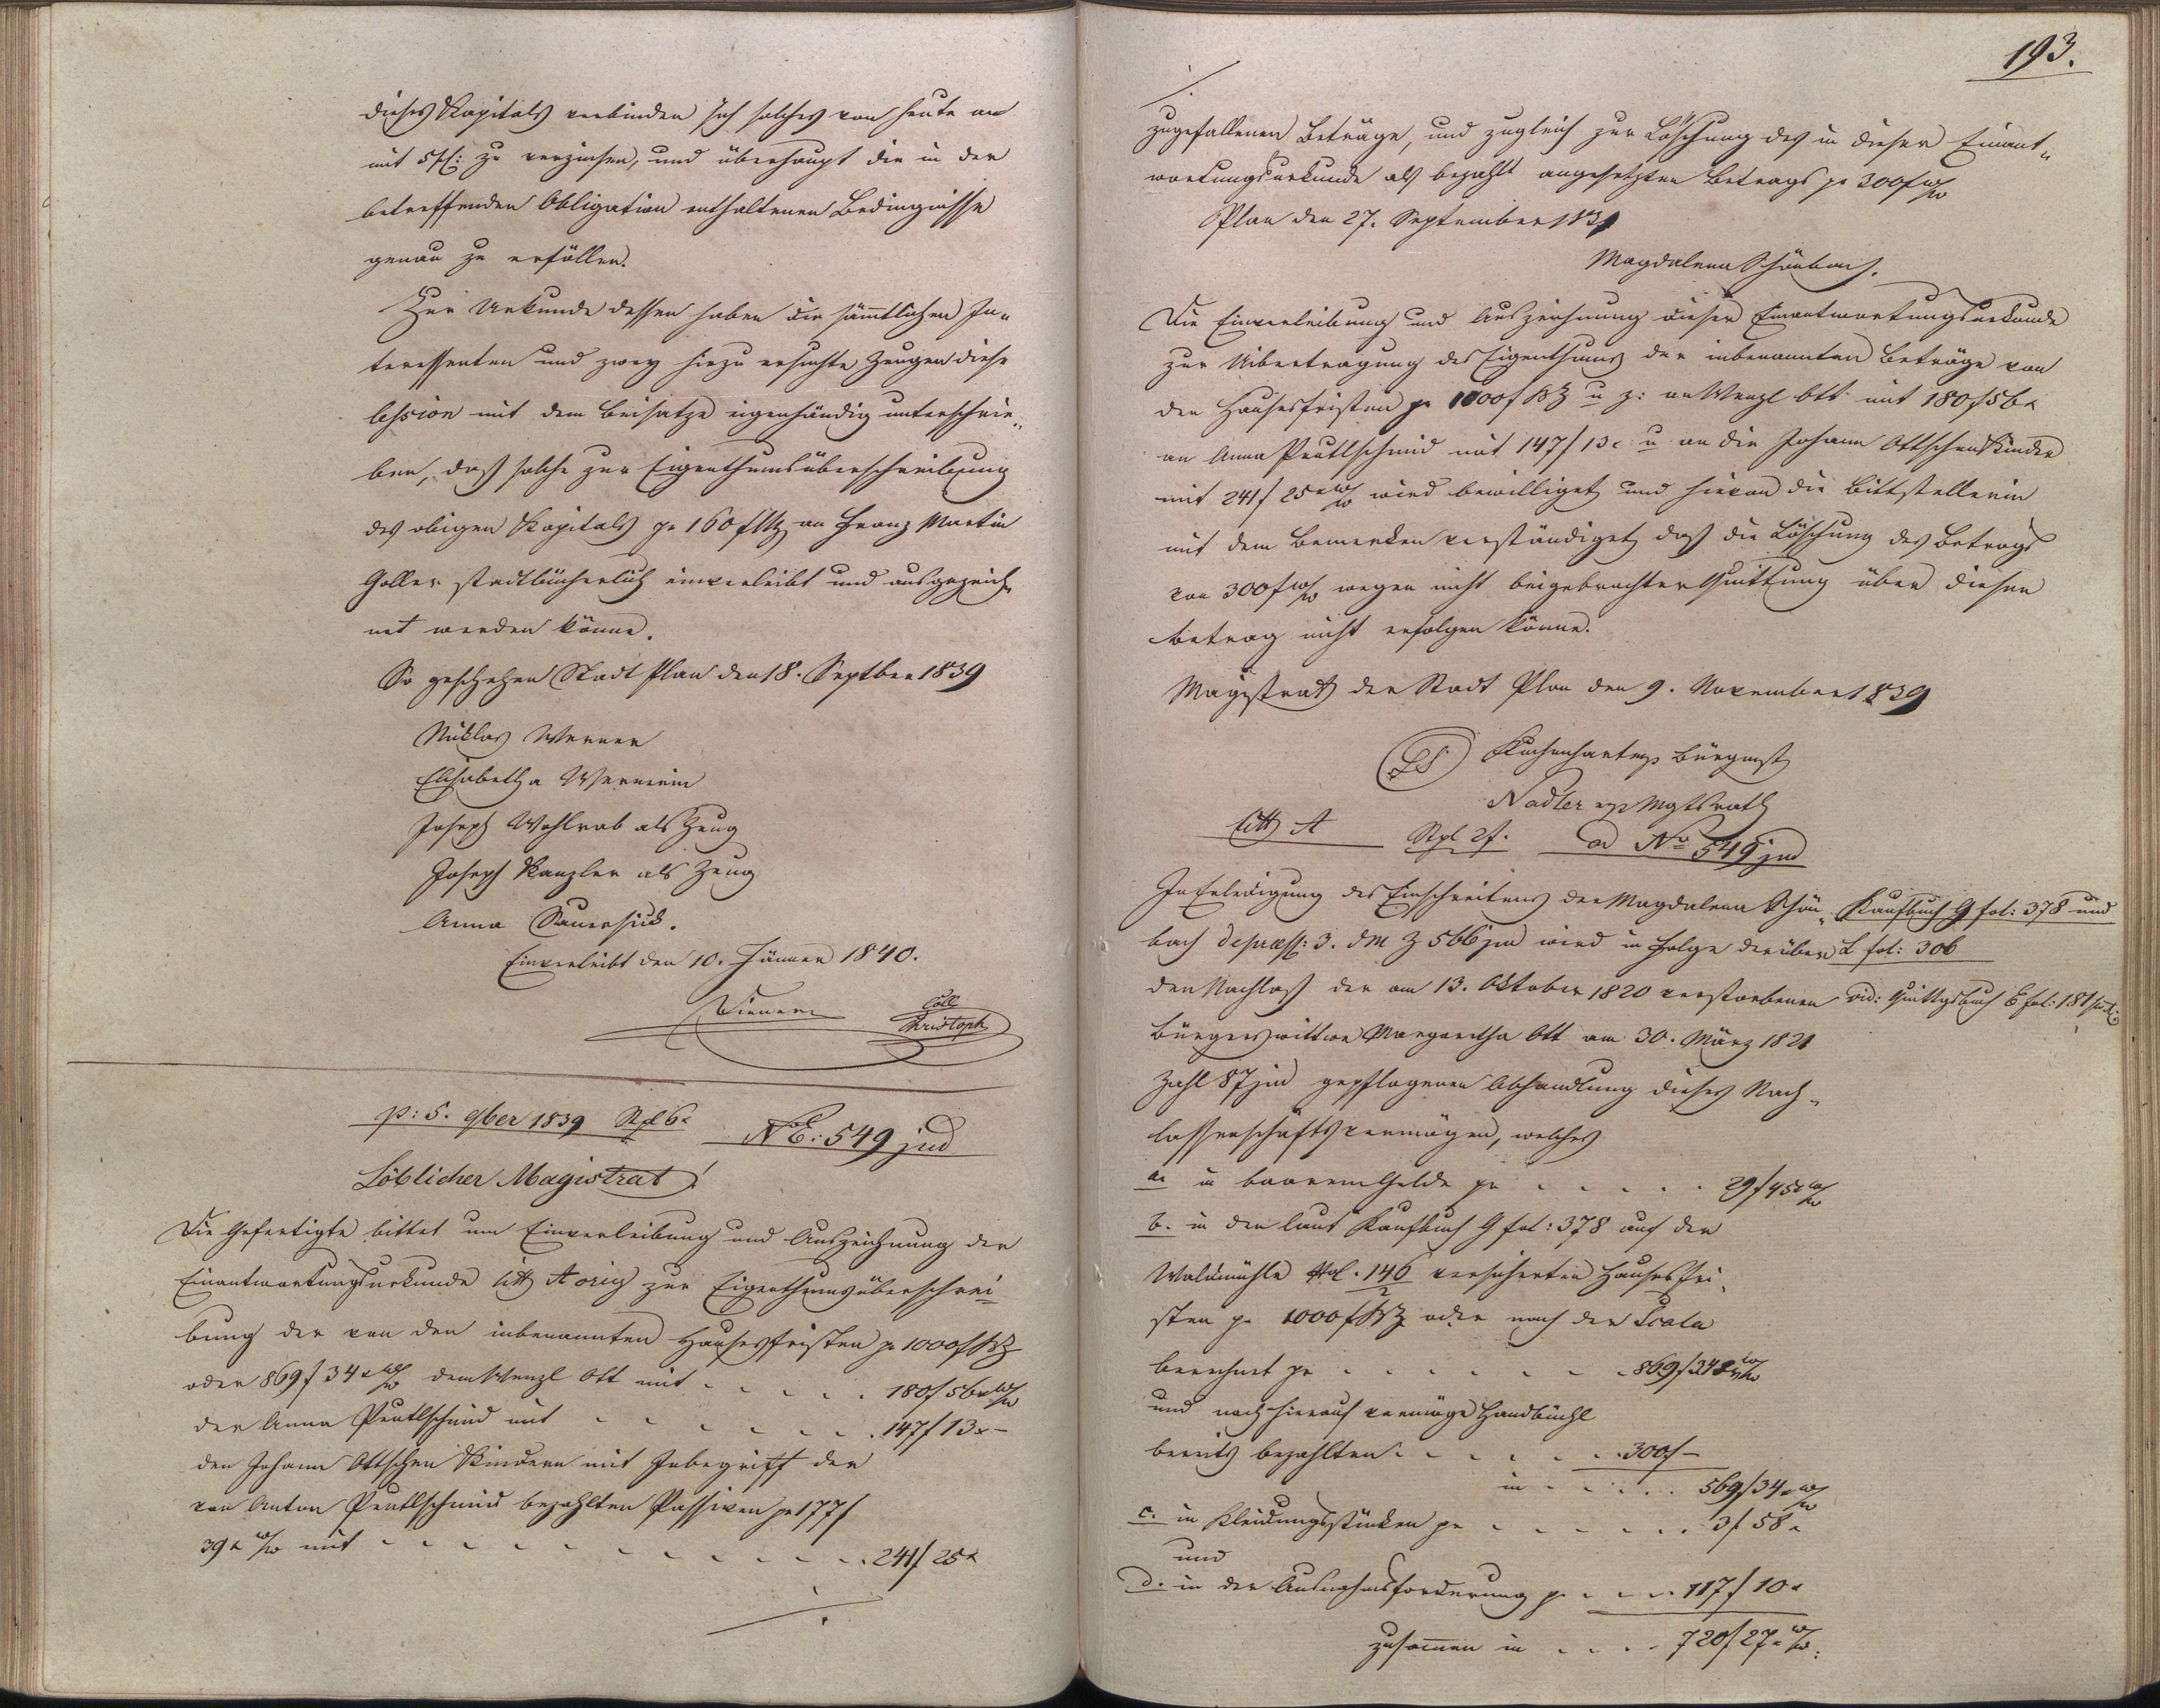 dieses Kapitals verbinden sich solches von heute an
mit 5 pf: zu verzinsen, und überhaupt die in der
betreffenden Obligation enthaltenen Bedingnisse
genau zu erfüllen.
Zur Urkunde dessen haben die sämtlichen In-
teressenten und zwey hiezu ersuchte Zeugen diese
Cession mit dem Beisatze eigenhändig unterschrie-
ben, daß solche zur Eigenthumsüberschreibung
des obigen Kapitals pr 160 f WW an Franz Martin
Goller stadtbücherlich einverleibt und ausgezeich-
net werden könne.
So geschehen Stadt Plan den 18. Septber 1839
Niklas Werner
Elisabetha Wernerin
Joseph Wohlrab als Zeug
Joseph Kanzler als Zeug
Anna Sauersück.
Einverleibt den 10. Jänner 1840.
Coll
Christoph
p: 5. 9ber 1839 Stpl 6x
NE: 549 jud
Löblicher Magistrat!
Die Gefertigte bittet um Einverleibung und Auszeichnung der
Einantwortungsurkunde Litt A orig zur Eigenthumsüberschrei-
bung der von den inbenannten Hausesfristen pr 1000 f BZ
oder 869 f 34 x W/W dem Wenzl Ott mit . . . . . 180 f 56 x W/W
der Anna Peutlschmid mit . . . . . . 147 f 13 x –
den Johann Ottschen Kindern mit Inbegriff der
von Anton Peutlschmid bezahlten Passiven pr 177 f
39 x W/W mit . . . . . . . . . . 241 f 25 x
./.
193.
./.
zugefallenen Beträge, und zugleich zur Löschung des in dieser Einant-
wortungsurkunde als bezahlt angesetzten Betrags pr 300 f W/W
Plan den 27. September 1839
Magdalena Schönbach.
Die Einverleibung und Auszeichnung dieser Einantwortungsurkunde
zur Uibertragung des Eigenthums der inbenannten Beträge von
den Hausesfristen pr 1000 f BZ u z: an Wenzl Ott mit 180 f 56 x
an Anna Peutlschmid mit 147 f 13 x u an die Johann Ottschen Kinder
mit 241 f 25 x W/W wird bewilliget und hievon die Bittstellerin
mit dem Bemerken verständiget, daß die Löschung des Betrags
von 300 f W/W wegen nicht beigebrachter Quittung über diesen
Betrag nicht erfolgen könne.
Magistrat der Stadt Plan den 9. November 1839
LS Bürgmst
Nadler mp Mgtsrath
Litt A Stpl 2 f. ad No 549 jud
In Erledigung des Einschreitens der Magdalena Schön-
bach de praess: 3. d M Z 566 jud wird in Folge der über
den Nachlaß der am 13. Oktober 1820 verstorbenen
Bürgerswittwe Margaretha Ott am 30. März 1821
Zahl 87 jud gepflogenen Abhandlung dieses Nach-
lassenschaftsvermögen, welches
a. in baarem Gelde pr . . . . . 29 f 45 x W/W
b. in den laut Kaufbuch G fol: 378 auf der
Waldmühle Nol. 146/2 versicherten Hausesfri-
sten pr 1000 f BZ oder nach der Scala
berechnet pr . . . . . . 869 f 34 x W/W
und nach hierauf vermöge Handbüchl
bereits bezahlten . . . . . 300 f –
in . . . . . 569 f 34 x W/W
c. in Kleidungsstücken pr . . . . . . 3 f 58 x
und
d. in der Ausnahmsforderung pr . . . . 117 f 10 x
zusammen in . . . . 720 f 27 x W/W:
Kaufbuch G fol: 378 und
L fol: 306
vid: Quittgsbuch E fol: 181